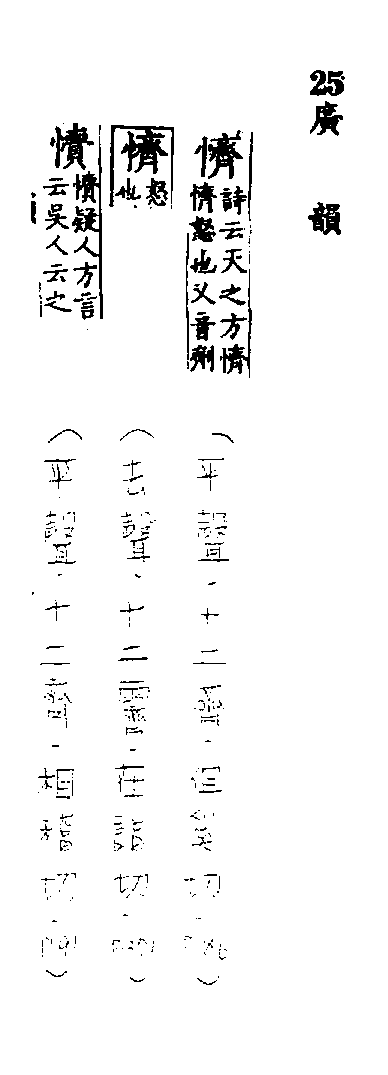 25廣韻
懠
詩云天之方懠
懠怒也又音劑
(平聲.十二齊.徂奚切.
懠
怒也
(去聲.十二霽.在詣切.
懠疑人方言
云吳人云之
(平聲.十二齊.相稽切.